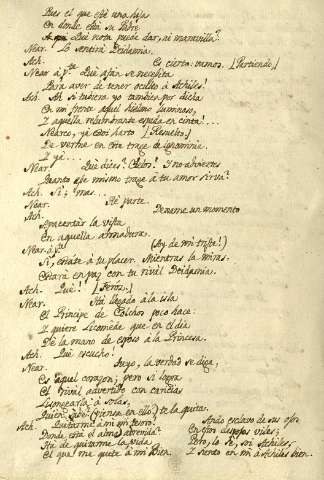 Pues el que esté una hija
En donde está su Padre
Qué nota puede dar, ni maravilla?
Near. Lo sentirá Deidamia.
Ach. Es cierto. vamos. [Partiendo]
Near à pte. Qué afán se necesita
Para aver de tener oculto à Achiles!
Ach. Ah si tubiera yo tambien por dicha
En mi frente aquel hielmo luminoso,
Y aquella relumbrante espada en cinta!...
Nearco, ya estoi harto [Resuelto]
De verme en este trage de ignominia
Y ya...
Near. Qué dices? Cielos! Y no adviertes
Quanto ese mismo trage à tu amor sirva?
Ach. Si; mas...
Near. Ea parte.
Ach. Dexame un momento
Apacentar la vista
En aquella armadura.
Near. à pte (Ay de mi triste!)
Si, estate à tu placer. Mientras la miras
Estará en paz con tu rival Deidamia.
Ach. Qué! [Feroz]
Near. Ha llegado à la isla
El Principe de Colchos poco hace:
Y quiere Licomede que en el dia
Dé la mano de esposo à la Princesa.
Ach. Qué escucho!
Near. Tuyo, la verdad se diga,
Es aquel corazon; pero si logra
El rival advertido con caricias
à solas,
Quien sabe (piensa en ello) te la quita.
Ach. Quitarme à mi mi tesoro!
Donde está el atreverá?
Ha de quitarme la vida
El que me quite à mi bien.
Ando esclavo de sus ojos
En estos despojos viles;
Pero, la fe, soi Achiles,
Y siento en mi à Achiles bien.